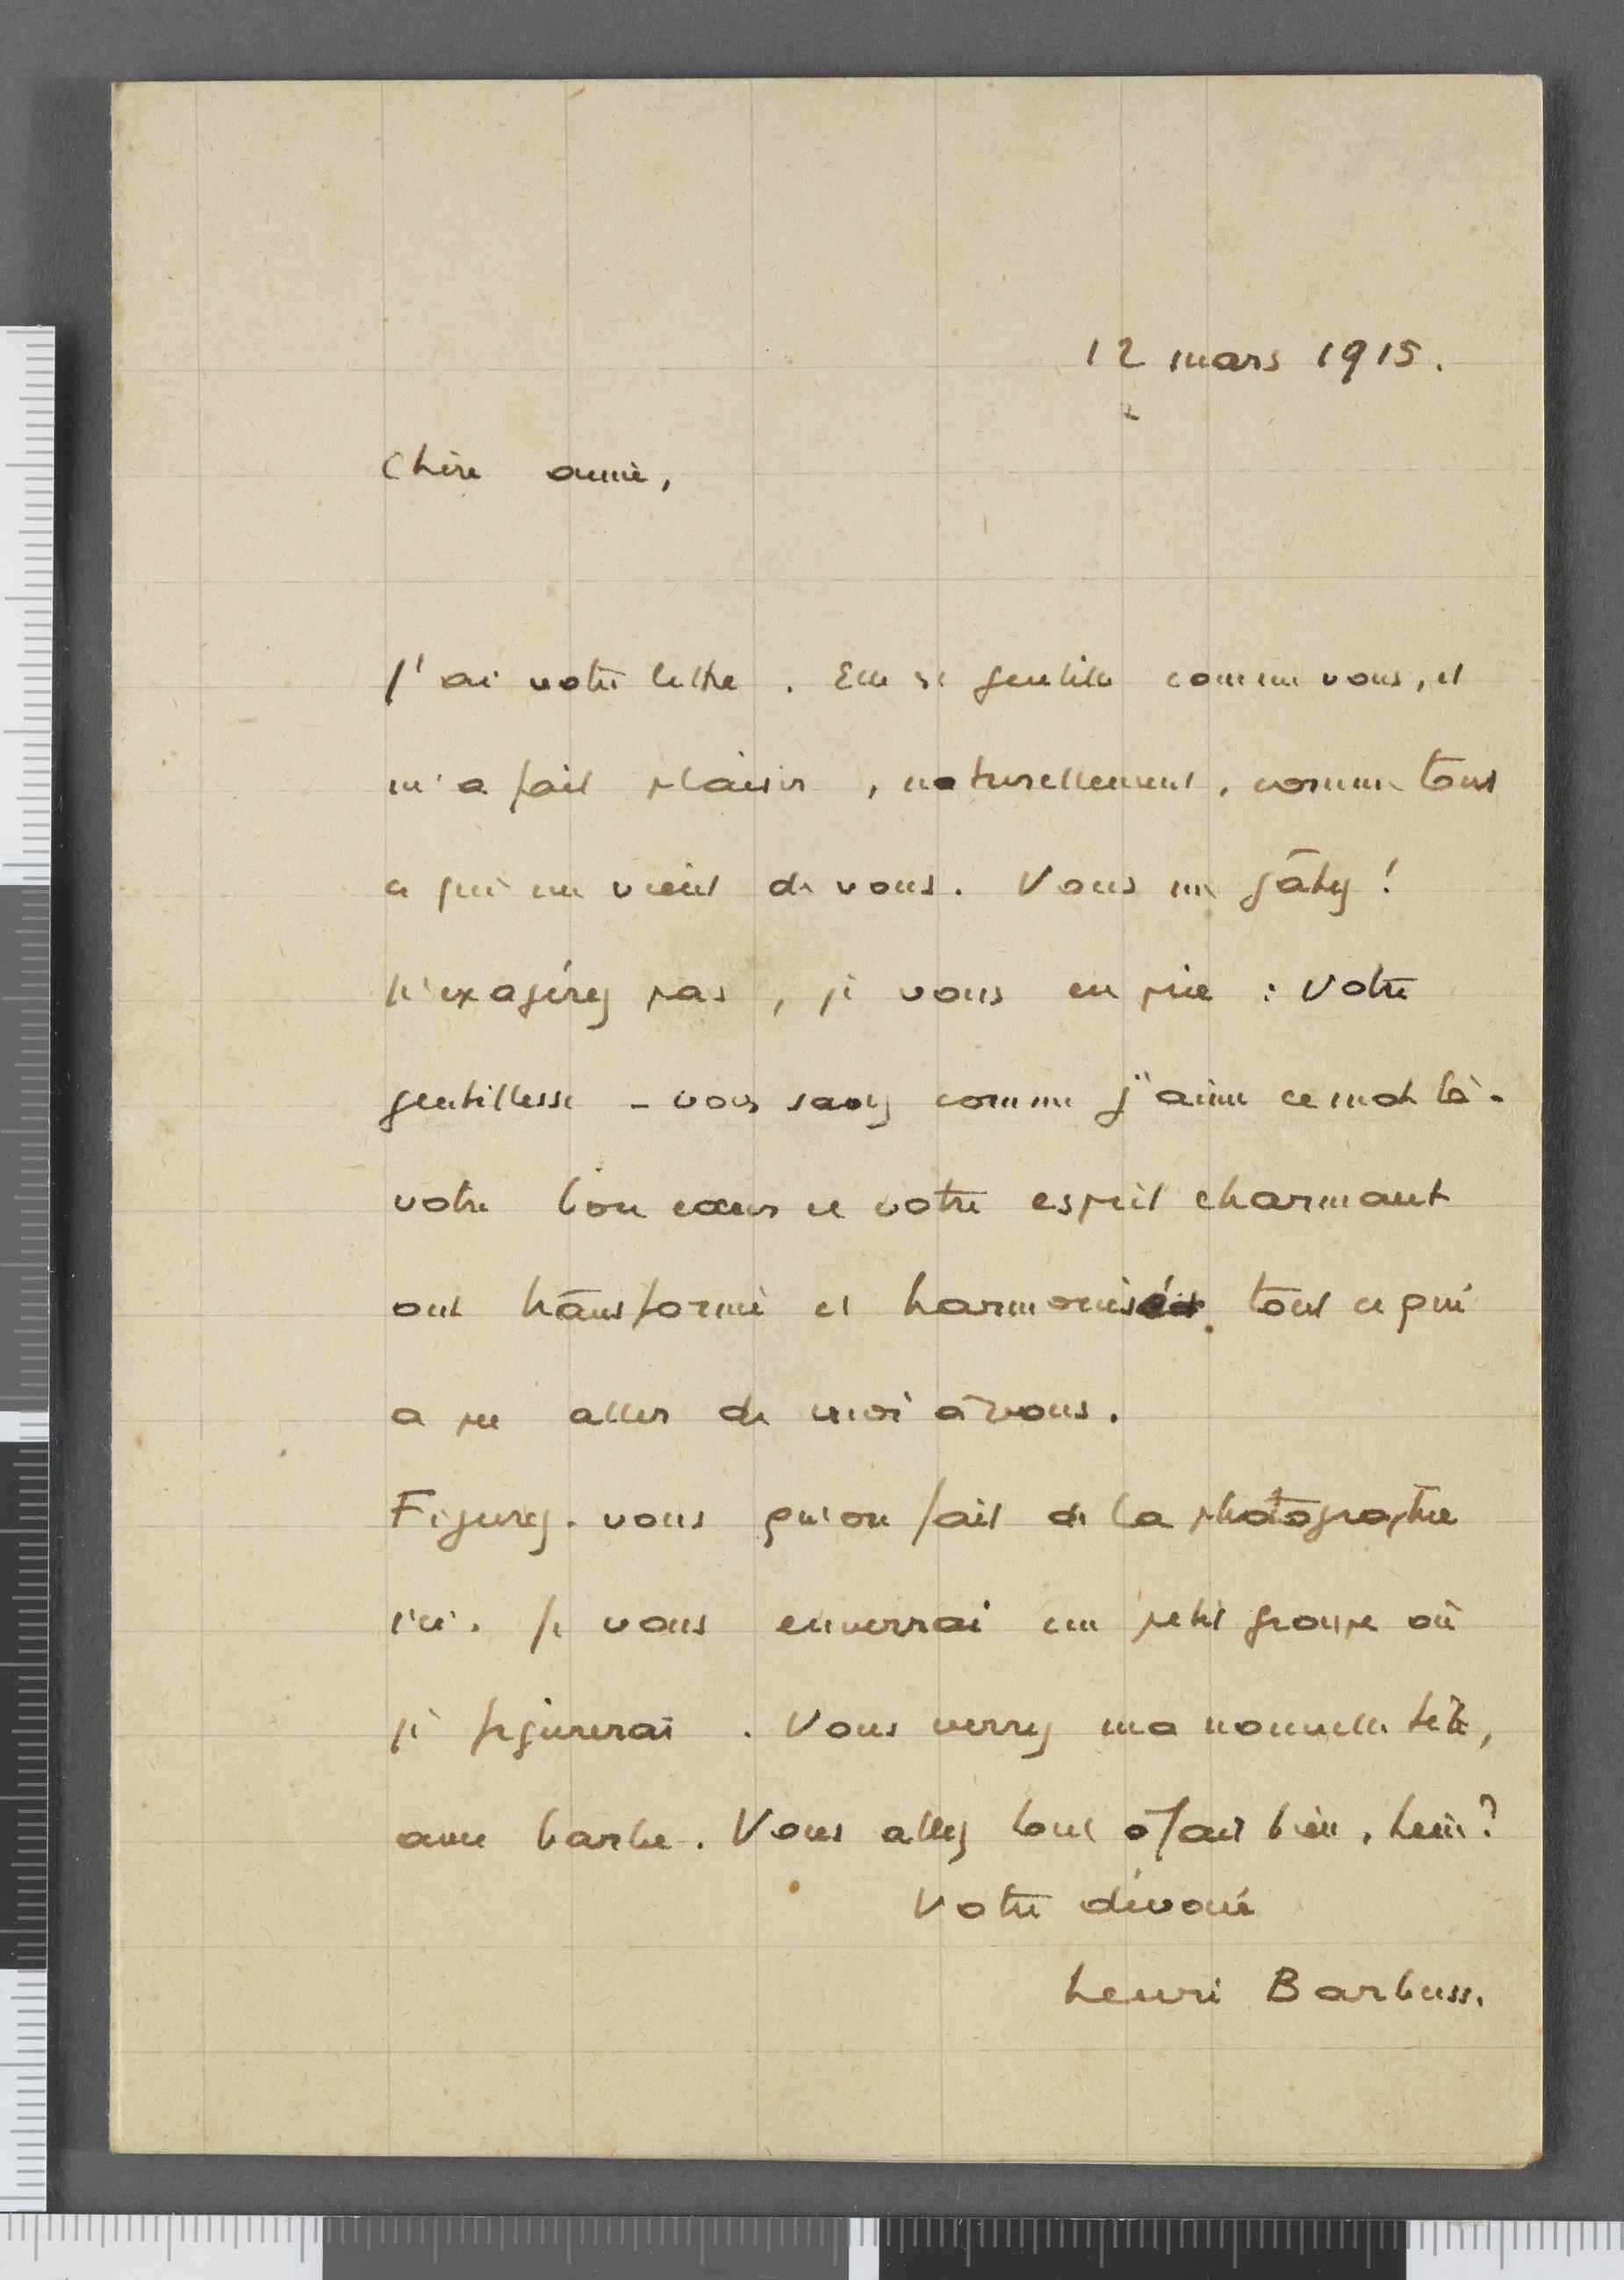 12 mars 1915.
Chère amie,
J'ai votre lettre. Elle est gentille comme vous, et
m'a fait plaisir, naturellement, comme tout
ce qui me vient de vous. Vous me gâtez !
N'exagérez pas, je vous en prie : votre
gentillesse - vous savez comme j'aime ce mot là -
votre bon cœur et votre esprit charmant
ont transformé et harmonisé tout ce qui
a pu aller de moi à vous.
Figurez-vous qu'on fait de la photographie
ici. Je vous enverrai un petit groupe où
je figurerai. Vous verrez ma nouvelle tête,
avec barbe. Vous allez tout à fait bien, hein ?
Votre dévoué
Henri Barbusse.